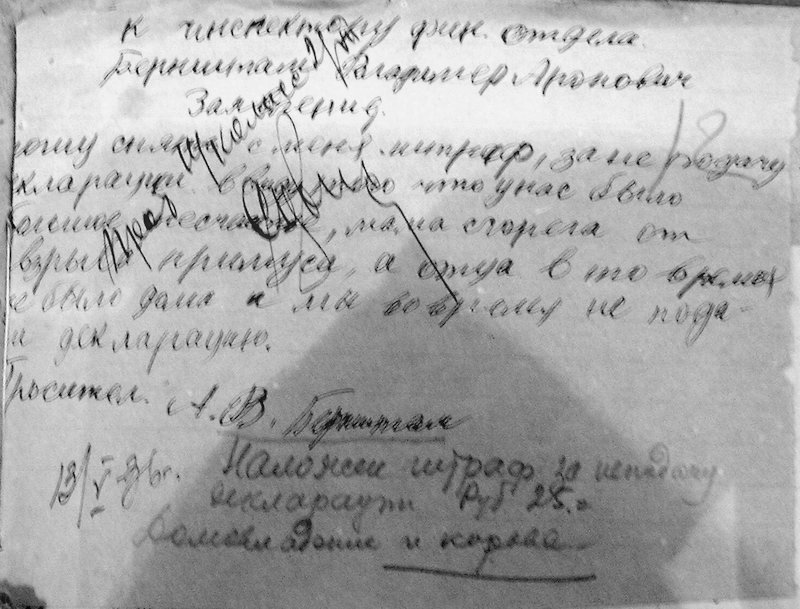 к инспектору фин. отдела.
Бернштам Владимер Аронович
Заявление.
рошу снять с меня штраф, за не подачу
екларации ввиду того что у нас было
большое несчастие, мама сгорела от
взрыва примуса, а отца в то время
не было дома и мы во время не пода-
и декларацию.
Проситель. А. В. Бернштам
13/V 36г. Наложен штраф за неподачу
декларации Руб 25.=
Домовладение и корова